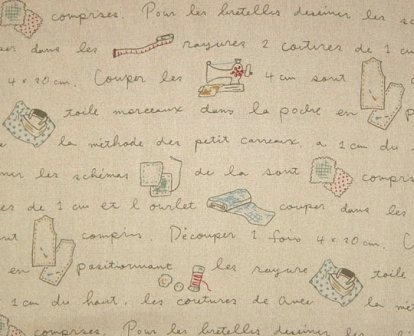 comprises. Pour les bretelles dessiner les so
per dans les rayures 2 coutures de 1 cm
4 x 20 cm. Couper les 4 cm sont
toile morceaux dans la poche en p
la méthode des petit carreaux, a 1 cm du
ner les schémas de la sont compris
es de 1 cm et l'ourlet couper dans les
compris. Découper 1 fois 4 x 20 cm. C
en positionnant les rayure toile
1 cm du haut, les coutures de avec la mét
comprises. Pour les bretelles dessiner les